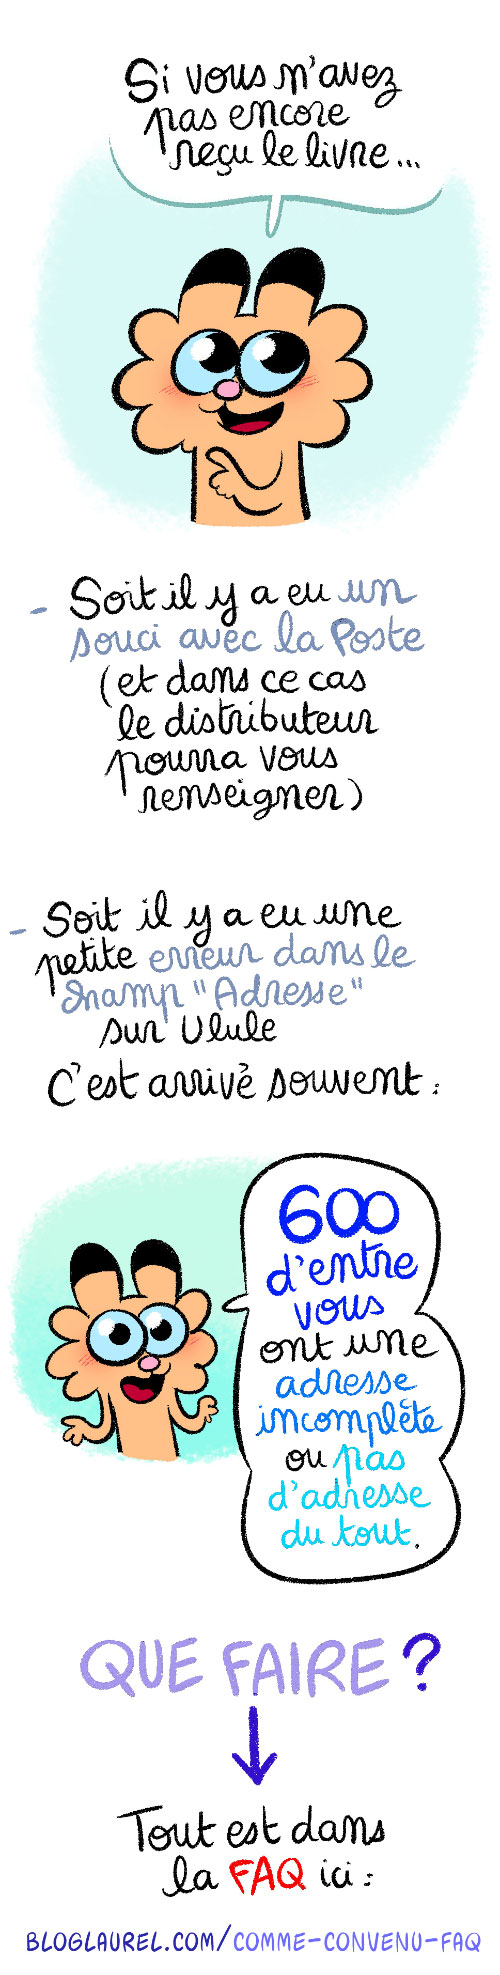 Si vous n'avez
pas encore
reçu le livre...
- Soit il y a eu un
souci avec la Poste
(et dans ce cas
le distributeur
pourra vous
renseigner)
- Soit il y a eu une
petite erreur dans le
champ "Adresse"
sur Ulule
C'est arrivé souvent :
600
d'entre
vous
ont une
adresse
incomplète
ou pas
d'adresse
du tout.
QUE FAIRE ?
Tout est dans
la FAQ ici :
BLOGLAUREL.COM/COMME-CONVENU-FAQ